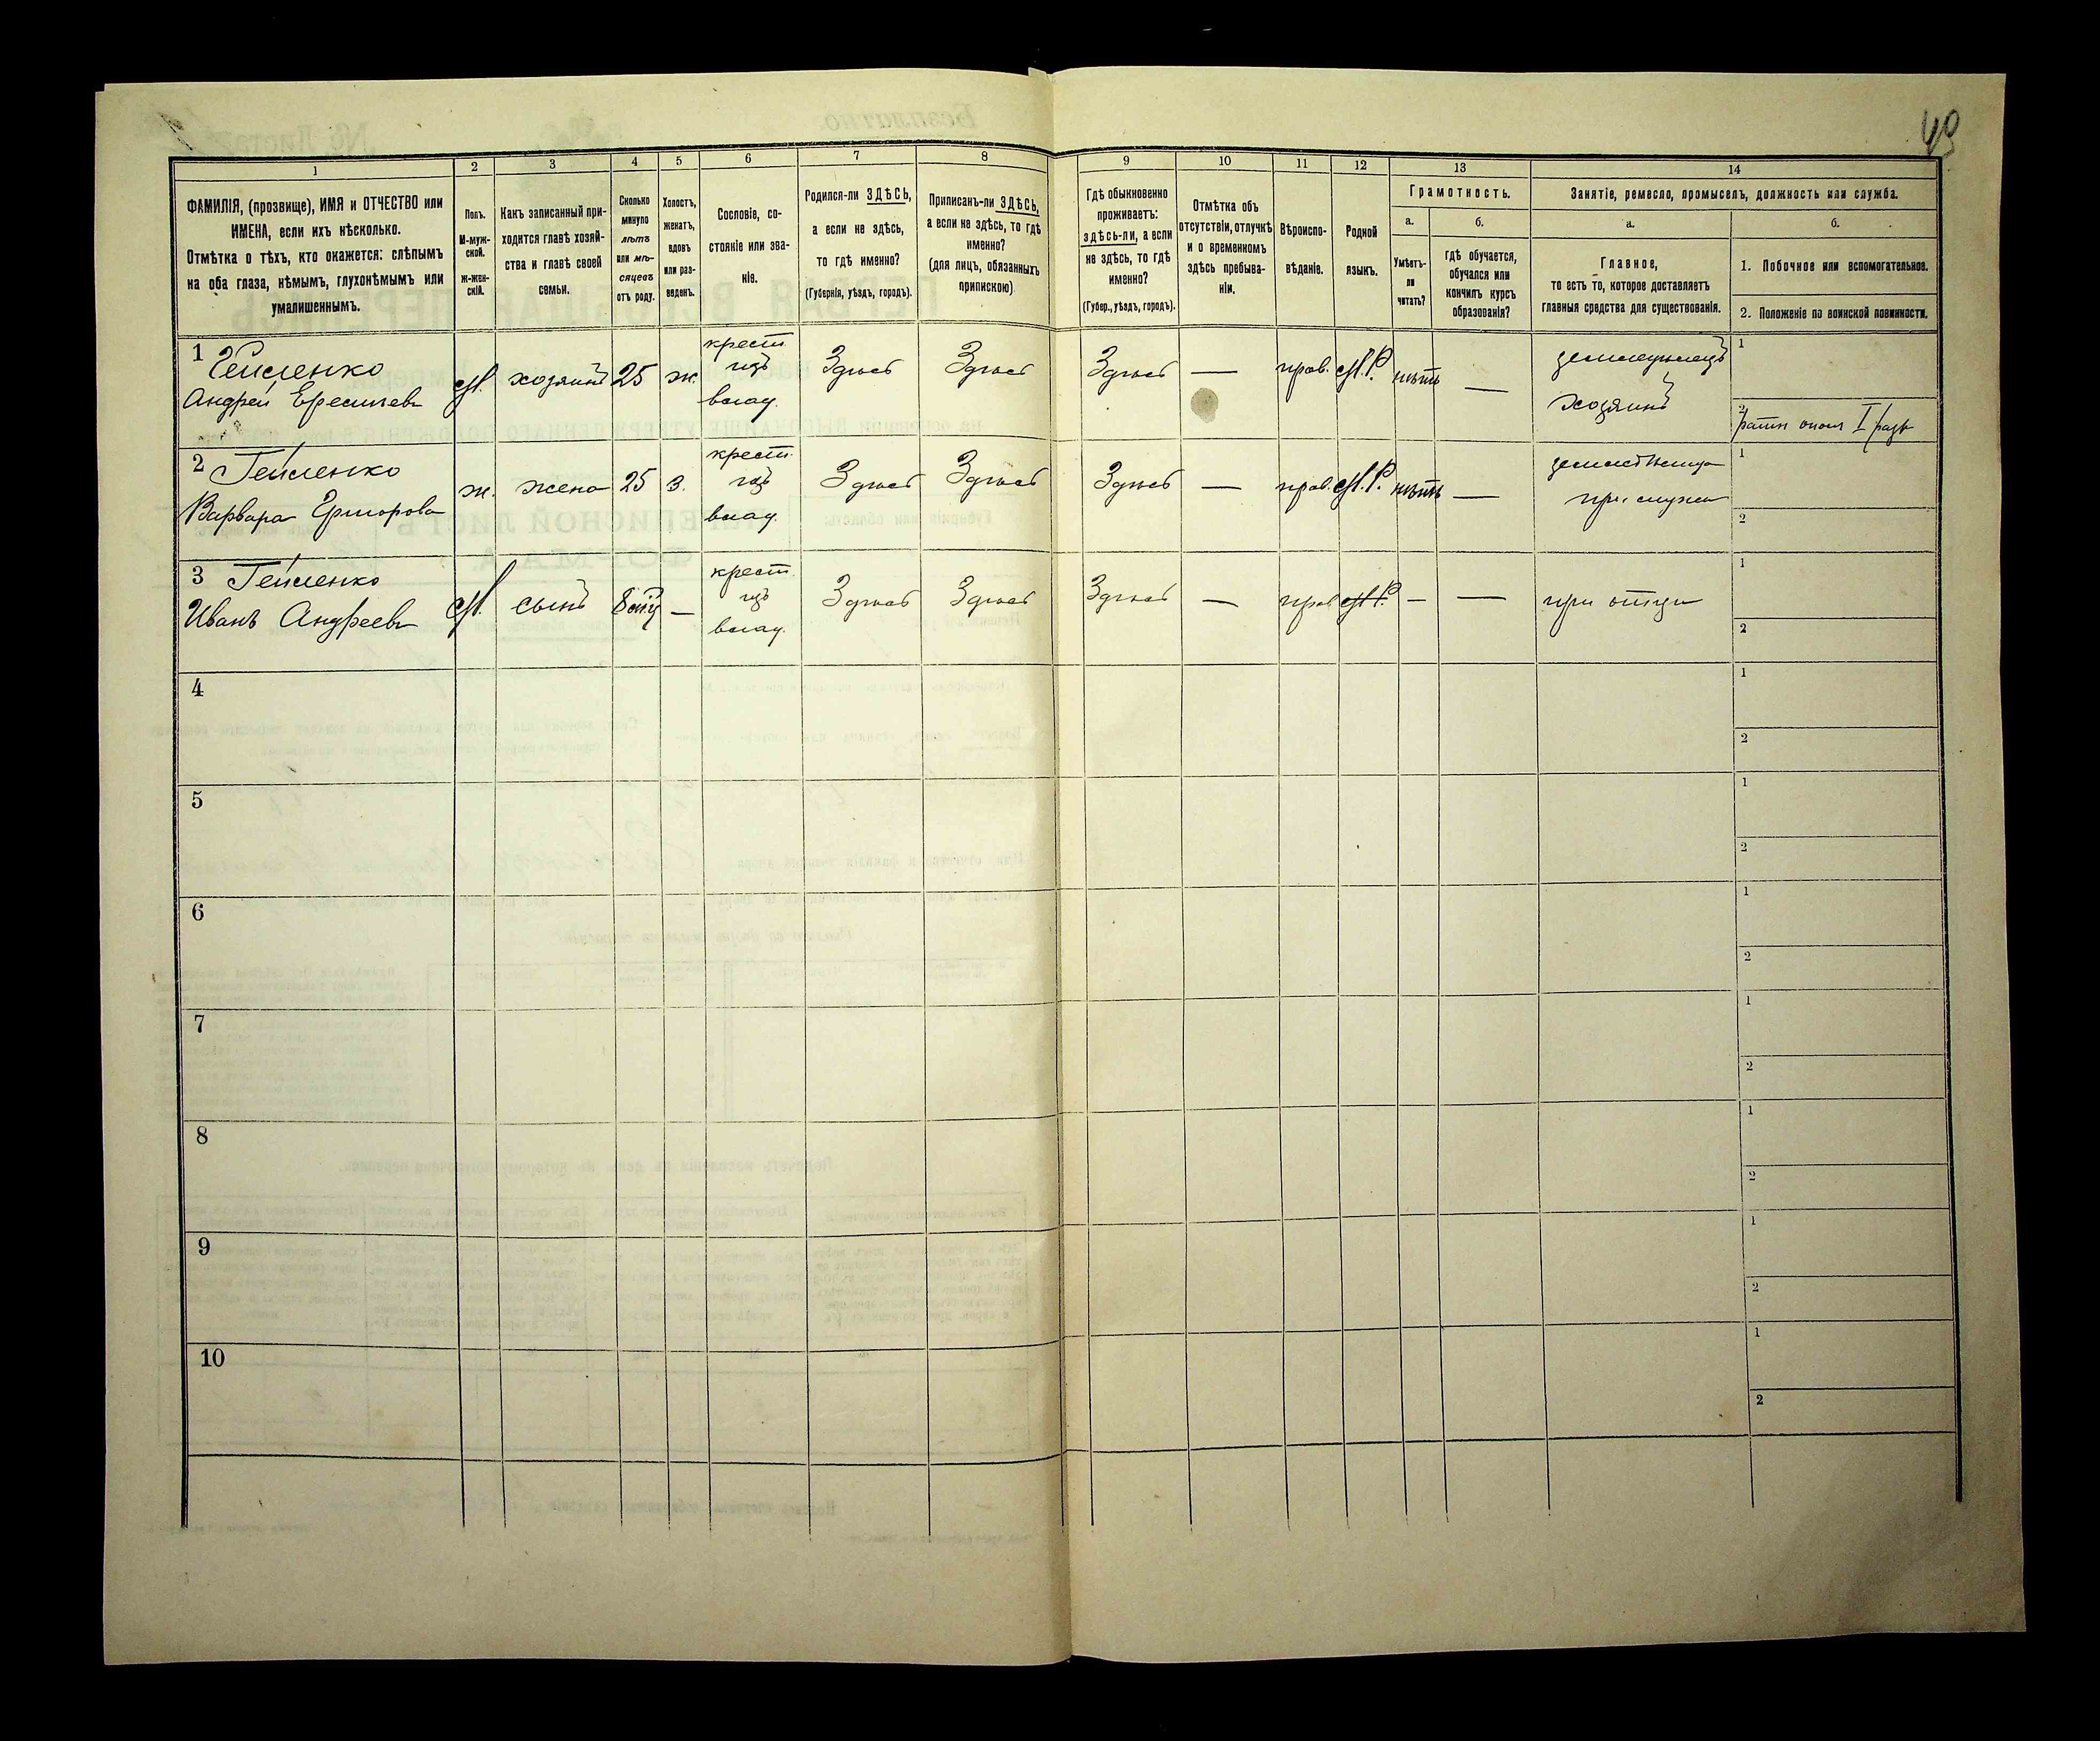 49
1 2 3 4 5 6 7 8 9 10 11 12 13 14
ФАМИЛІЯ, (прозвище), ИМЯ и ОТЧЕСТВО или
ИМЕНА, если ихъ нѣсколько.
Отмѣтка о тѣхъ, кто окажется: слѣпымъ
на оба глаза, нѣмымъ, глухонѣмымъ или
умалишеннымъ.
Полъ.
М-муж-
ской.
Ж-жен-
скій.
Какъ записанный при-
ходится главѣ хозяй-
ства и главѣ своей
семьи.
Сколько
минуло
лѣтъ
или мѣ-
сяцевъ
отъ роду.
Холостъ,
женатъ,
вдовъ
или раз-
веденъ.
Сословіе, со-
стояніе или зва-
ніе.
Родился-ли ЗДѢСЬ,
а если не здѣсь,
то гдѣ именно?
(Губернія, уѣздъ, городъ).
Приписанъ-ли ЗДѢСЬ,
а если не здѣсь, то гдѣ
именно?
(для лицъ, обязанныхъ
припискою)
Гдѣ обыкновенно
проживаетъ:
здѣсь-ли, а если
не здѣсь, то гдѣ
именно?
(Губер., уѣздъ, городъ).
Отмѣтка объ
отсутствіи, отлучкѣ
и о временномъ
здѣсь пребыва-
ніи.
Вѣроиспо-
вѣданіе.
Родной
языкъ.
Грамотность.
а. б.
Умѣетъ-
ли
читать?
гдѣ обучается,
обучался или
кончилъ курсъ
образованія?
Занятіе, ремесло, промыселъ, должность или служба.
а. б.
Главное,
то есть то, которое доставляетъ
главныя средства для существованія.
1. Побочное или вспомогательное.
2. Положеніе по воинской повинности.
1 Гейченко
Андрей
М. хозяинъ 25 ж.
крест.
изъ
влад.
Здѣсь Здѣсь Здѣсь — прав. М.Р. нѣтъ —
земледѣлецъ
хозяинъ
1
2
ратн. опол. I разр.
2 Гейченко
Варвара
ж. жена 25 з.
крест.
изъ
влад.
Здѣсь Здѣсь Здѣсь — прав. М.Р. нѣтъ —
при мужѣ
1
2
3 Гейченко
Иванъ Андреевъ
М. сынъ 8 —
крест.
изъ
влад.
Здѣсь Здѣсь Здѣсь — прав. М.Р. — —
при отцѣ
1
2
4
1
2
5
1
2
6
1
2
7
1
2
8
1
2
9
1
2
10
1
2